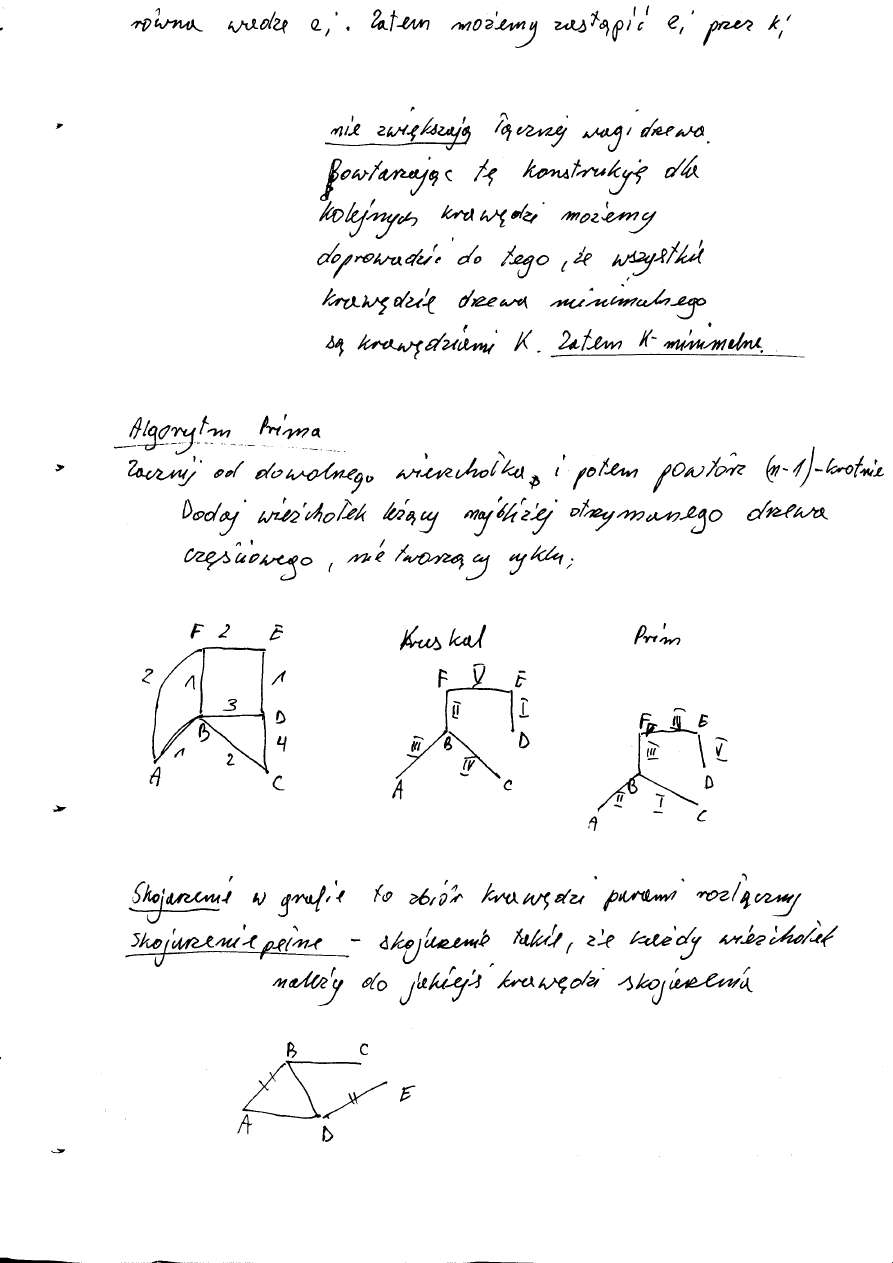 równa wadze ei. Zatem możemy zastąpić ei przez ki
nie zwiększają łącznej wagi drzewa.
Powtarzając tę konstrukcję dla
kolejnych krawędzi możemy
doprowadzić do tego, że wszystkie
krawędzie drzewa minimalnego
są krawędziami K. Zatem K-minimalne.
Algorytm Prima
Zacznij od dowolnego wierzchołka, i potem powtórz (n-1)-krotnie
Dodaj wieżchołek leżący najbliżej otrzymanego drzewa
częściowego, nie tworzący cyklu;
F 2 E
2 1 3 1
B D
A 1 2 4
C
Kruskal
F V E
II I
B D
III IV
A C
Prim
F IV E
III V
B D
II I
A C
Skojarzenie w grafie to zbiór krawędzi parami rozłączny
Skojarzenie pełne - skojarzenie takie, że każdy wieżchołek
należy do jakiejś krawędzi skojarzenia
B C
A D E